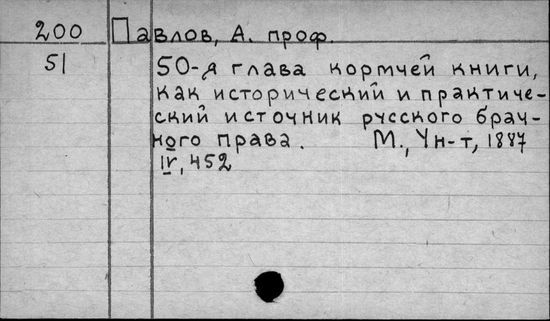 200 Павлов, А. проф.
51 50-я глава кормчей книги,
как исторический и практиче-
ский источник русского брач-
ного права. М., Ун-т, 1887
IV, 452